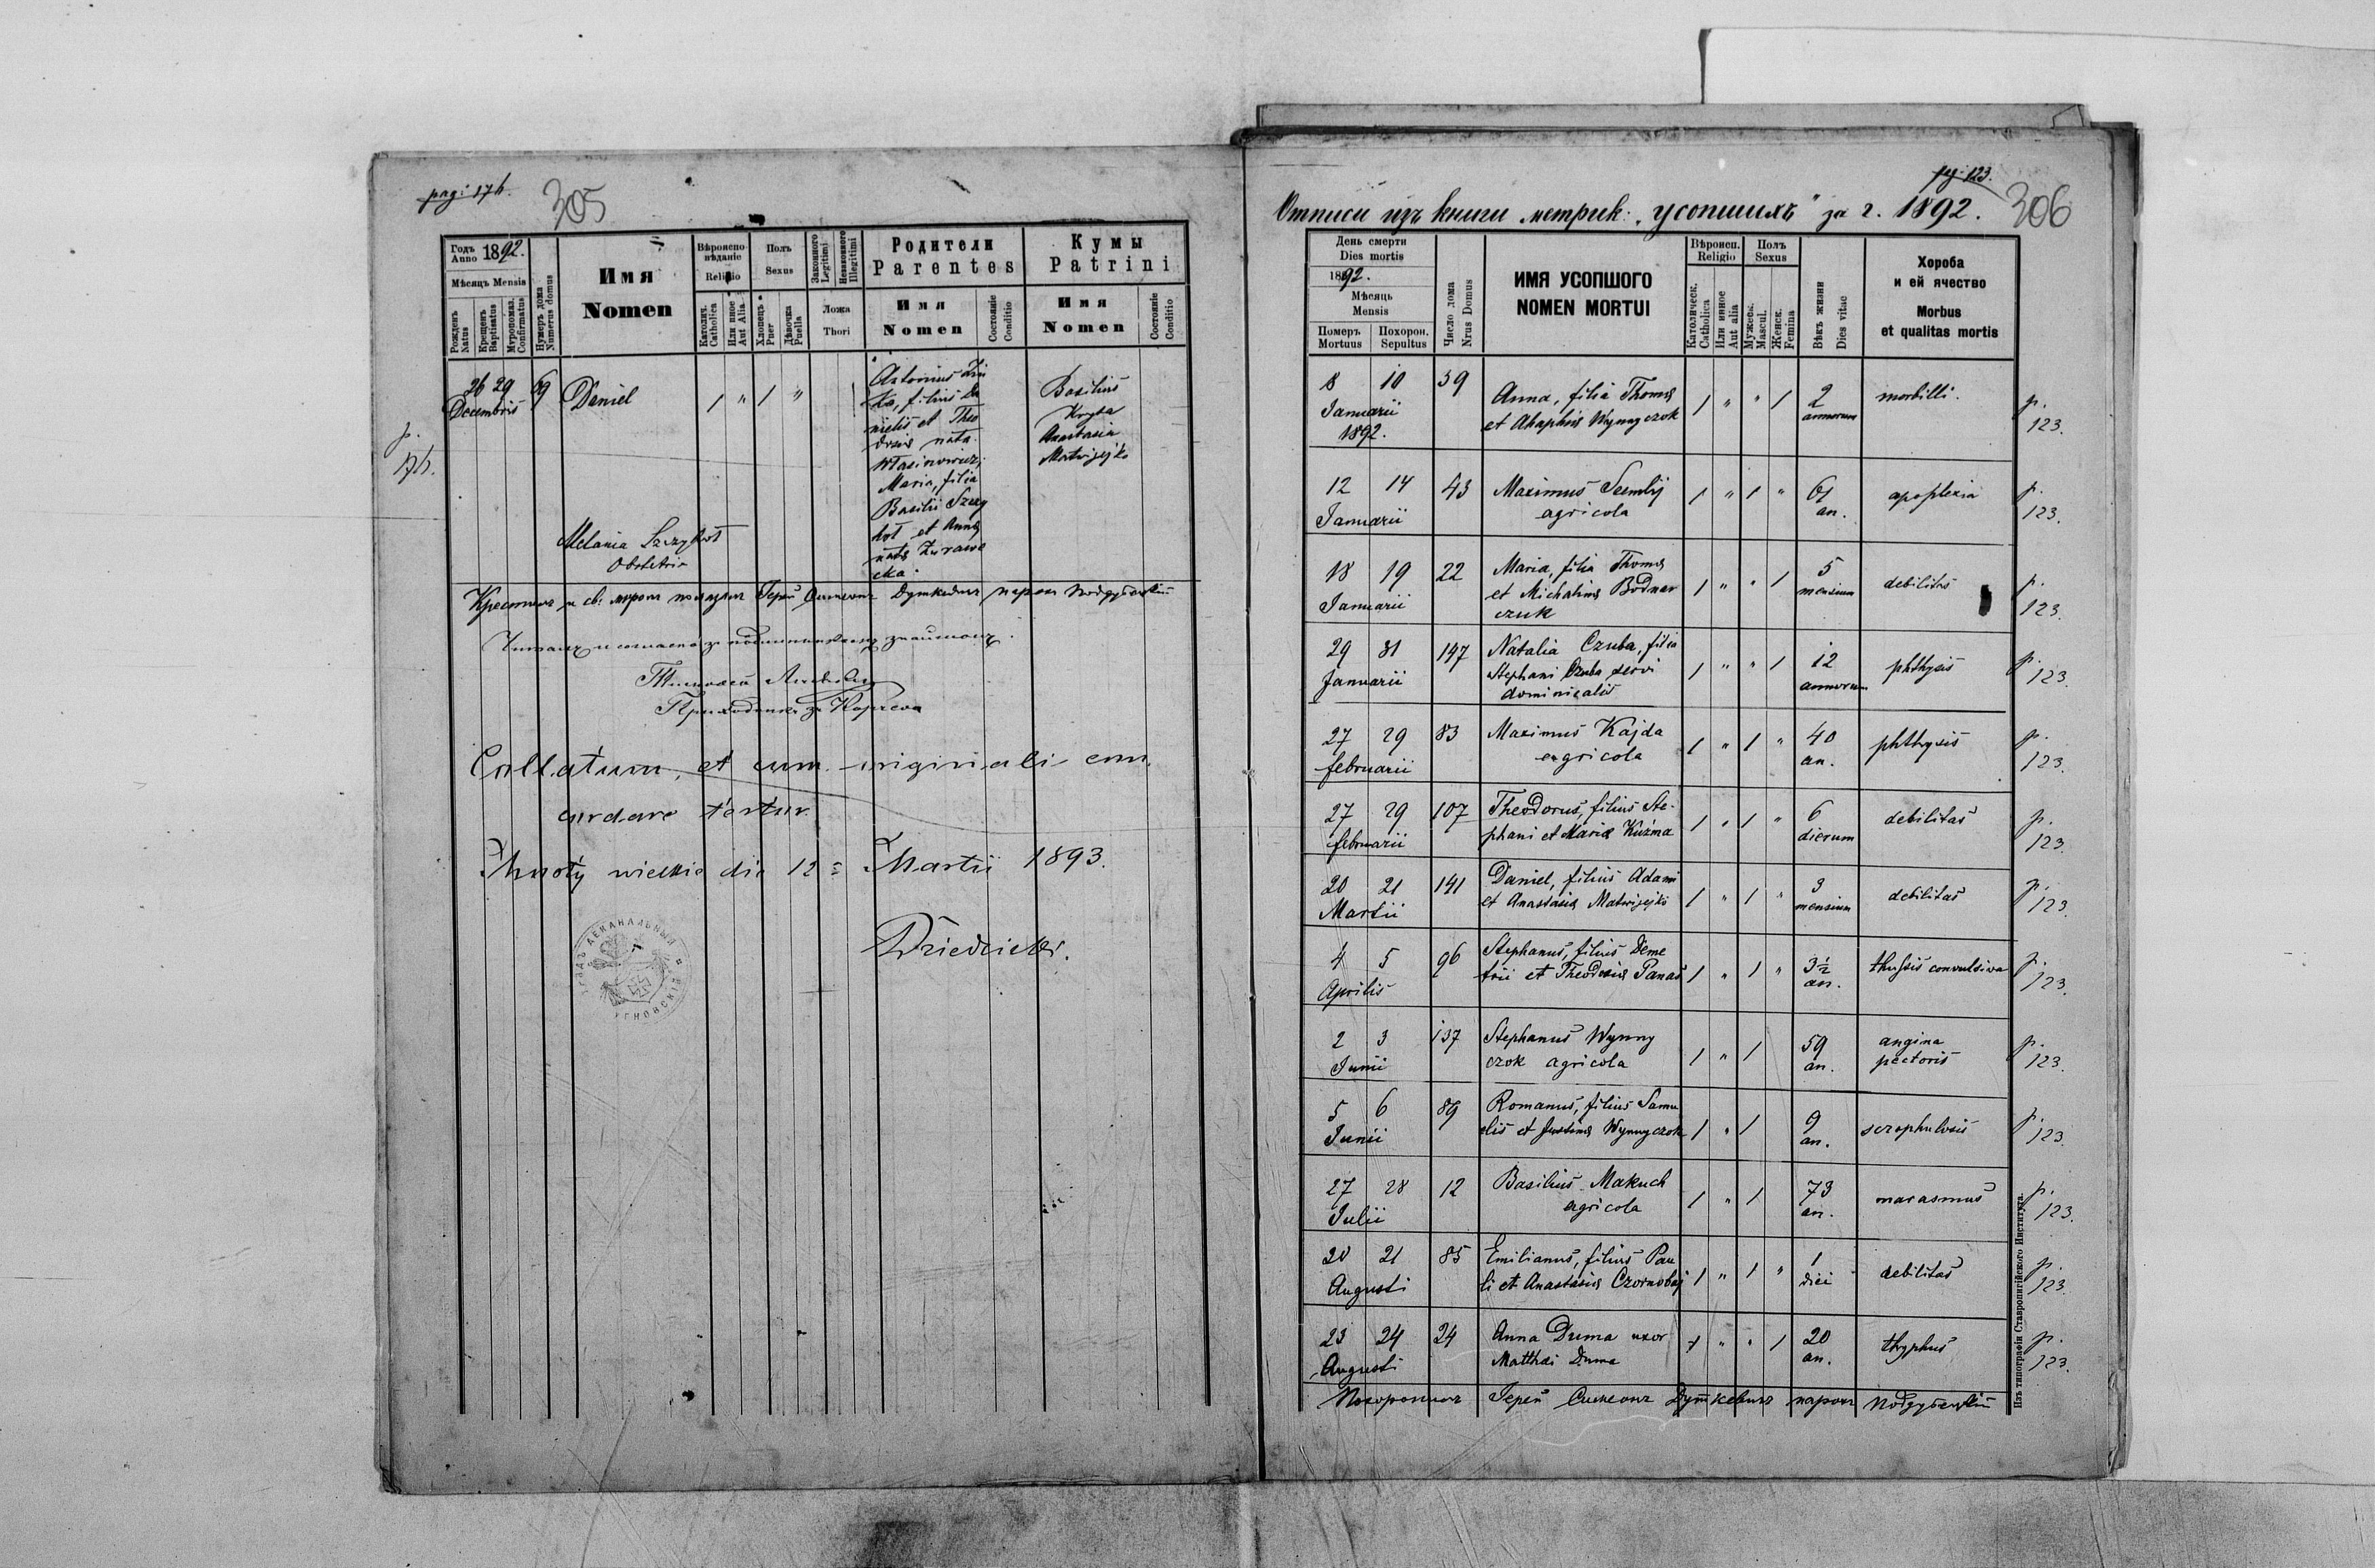 pag: 176.
305
Годъ Anno 1892.
Мѣсяцъ Mensis
Рожденъ Natus
Крещенъ Baptisatus
Муропомаз. Confirmatus
Нумеръ дома Numerus domus
Имя
Nomen
Вѣроиспо-
вѣданіе
Religio
Католич. Catholica
Или иное Aut Alia
Полъ
Sexus
Хлопецъ Puer
Дѣвочка Puella
Законного Legitimi
Незаконного Illegitimi
Ложа
Thori
Родители
Parentes
Имя
Nomen
Состояніе Conditio
Кумы
Patrini
Имя
Nomen
Состояніе Conditio
26 29 69 Daniel 1 " 1 "
Decembris
Antonius
filius Da
nielis et Theo
dosiæ nata
Maria, filia
Basilii Szczy
kot et Annæ
natæ Zurawe
cka.
Basilius
Kryta
Anastasia
Matwijejko
p.
176.
Melania Szczykot
Obstetrix
Крестилъ и св. мѵромъ помазалъ Іерей Симеонъ Дуткевичъ парохъ Поддубецкій
Collatum, et cum originali con
cordare testur.
Mosty wielkie die 12 Martii 1893.
Dziedzicki.
pg. 123.
306
Отписи изъ книги метрик: "усопшихъ" за г. 1892.
День смерти
Dies mortis
1892.
Мѣсяць
Mensis
Померъ Mortuus
Похорон. Sepultus
Число дома
Nrus Domus
ИМЯ УСОПШОГО
NOMEN MORTUI
Вѣроисп.
Religio
Католическ. Catholica
Или инное Aut alia
Полъ
Sexus
Мужеск. Mascul.
Женск. Femina
Вѣкъ жизни
Dies vitae
Хороба
и ей ячество
Morbus
et qualitas mortis
8 10 39 Anna, filia Thomæ 1 " " 1 2 morbilli. p.
Januarii et Ahaphiæ Wynnyczok annorum 123.
1892.
12 14 43 Maximus 1 " 1 " 61 apoplexia p.
Januarii agricola an. 123.
18 19 22 Maria, filia Thomæ 1 " " 1 5 debilitas p.
Januarii et Michalinæ Bodnar mensium 123.
czuk
29 31 147 Natalia Czuba, filia 1 " " 1 12 phthysis p.
Januarii Stephani Czuba servi annorum 123.
dominicalis
27 29 83 Maximus Kajda 1 " 1 " 40 phthysis p.
februarii agricola an. 123.
27 29 107 Theodorus, filius Ste- 1 " 1 " 6 debilitas p.
februarii phani et Mariæ Kuźma dierum 123.
20 21 141 Daniel, filius Adami 1 " 1 " 3 debilitas p.
Martii et Anastasiæ Matwijejko mensium 123.
4 5 96 Stephanus, filius Deme 1 " 1 " 3½ thussis convulsiva p.
Aprilis trii et Theodosiæ Panas an. 123.
2 3 137 Stephanus Wynny 1 " 1 59 angina p.
Junii czok agricola an. pectoris 123.
5 6 89 Romanus, filius Samu 1 " 1 9 scrophulosis p.
Junii elis et Justinæ Wynnyczok an. 123.
27 28 12 Basilius Makuch 1 " 1 73 marasmus p.
Julii agricola an. 123.
20 21 85 Emilianus, filius Pau 1 " 1 " 1 debilitas p.
Augusti li et Anastasiæ Czornobaj diei 123.
23 24 24 Anna Duma uxor 1 " " 1 20 thyphus p.
Augusti Matthæi Duma an. 123.
Похоронилъ Іерей Симеонъ Дуткевичъ парохъ Поддубецкій
Изъ типографіи Ставропигійского Института.